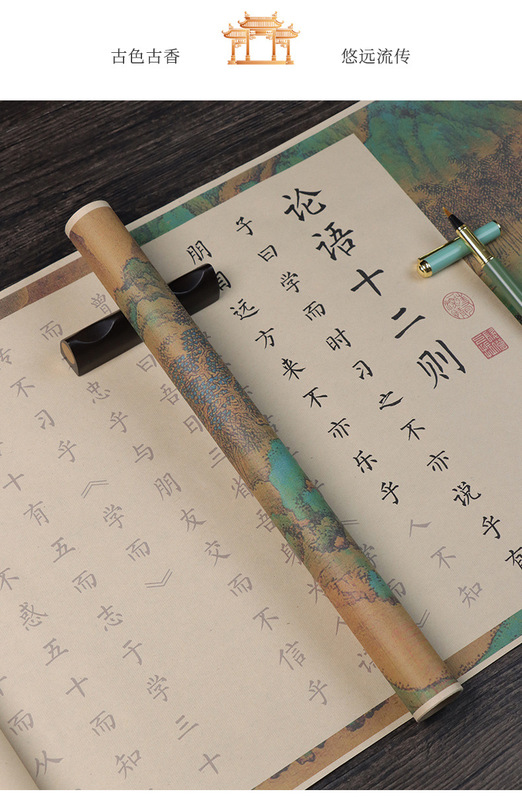 古色古香
悠远流传
论语十二则
子曰学而时习之不亦说乎有
朋自远方来不亦乐乎人不知
曾曰吾曰三省吾身人
而不忠乎与朋友交而不信乎
传不习乎《学而》
十有五而志于学三十
不惑五十而知
从